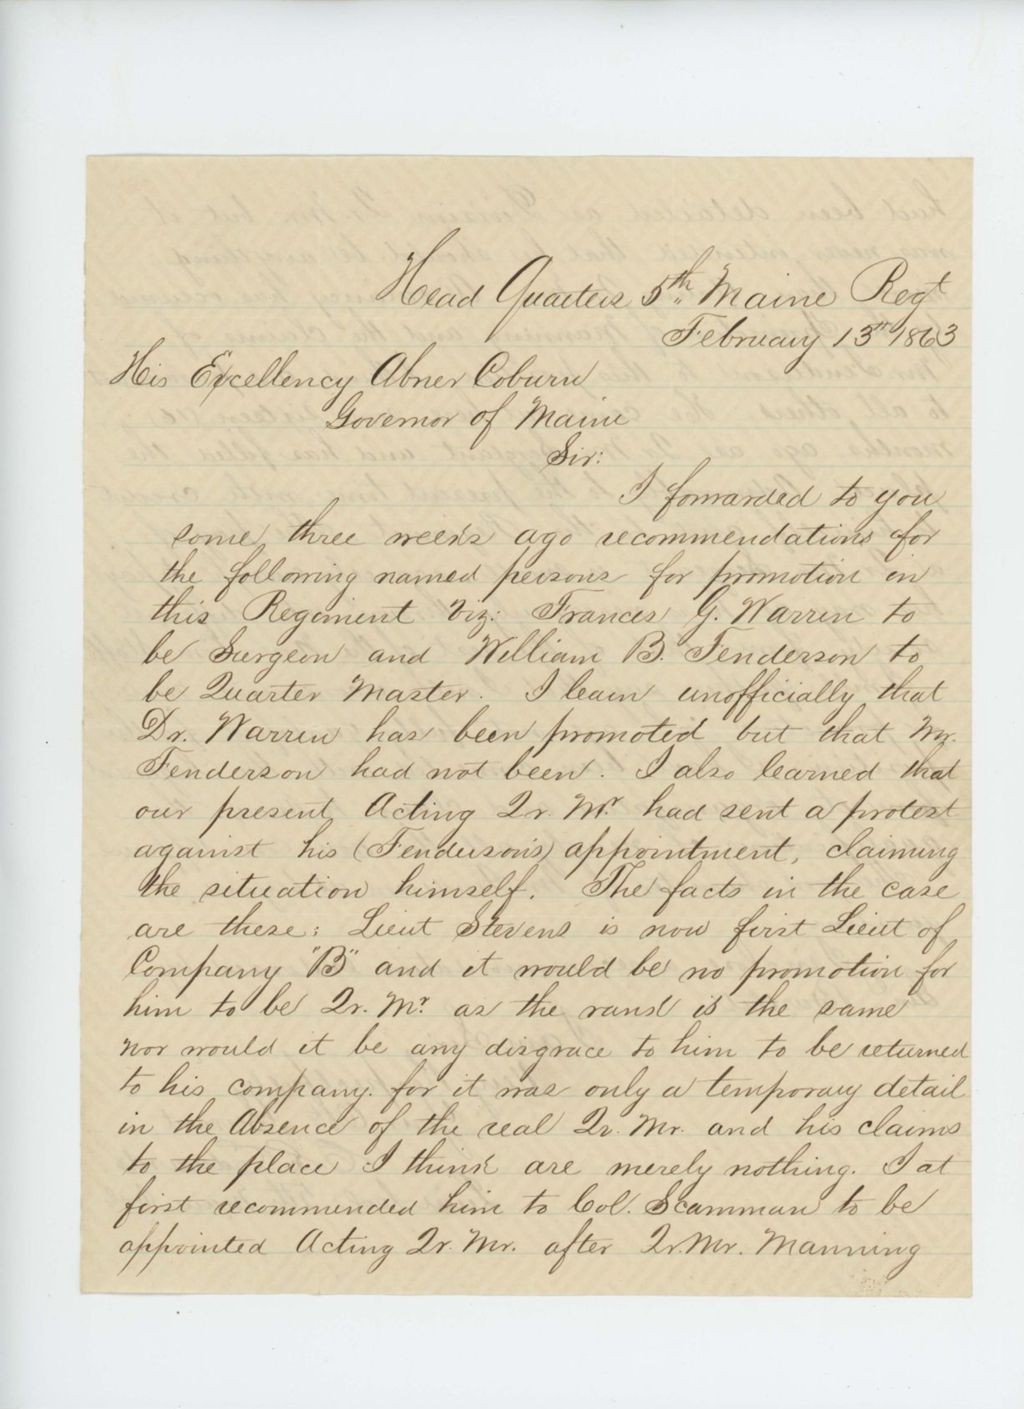 Head Quarters 5th Maine Regt
February 13th 1863
His Excellency Abner Coburn
Governor of Maine
Sir:
I forwarded to you
some three weeks ago recommendations for
the following named persons for promotion in
this Regiment viz: Frances G. Warren to
be Surgeon and William B. Fenderson to
be Quarter Master. I learn unofficially that
Dr. Warren has been promoted but that Mr.
Fenderson had not been. I also learned that
our present Acting Qr. Mr. had sent a protest
against his (Fenderson's) appointment, claiming
the situation himself. The facts in the case
are these: Lieut Stevens is now first Lieut of
Company "B" and it would be no promotion for
him to be Qr. Mr. as the rank is the same
nor would it be any disgrace to him to be returned
to his company. for it was only a temporary detail
in the Absence of the real Qr. Mr. and his claims
to the place I think are merely nothing. I at
first recommended him to Col. Scamman to be
appointed Acting Qr. Mr. after Qr. Mr. Manning